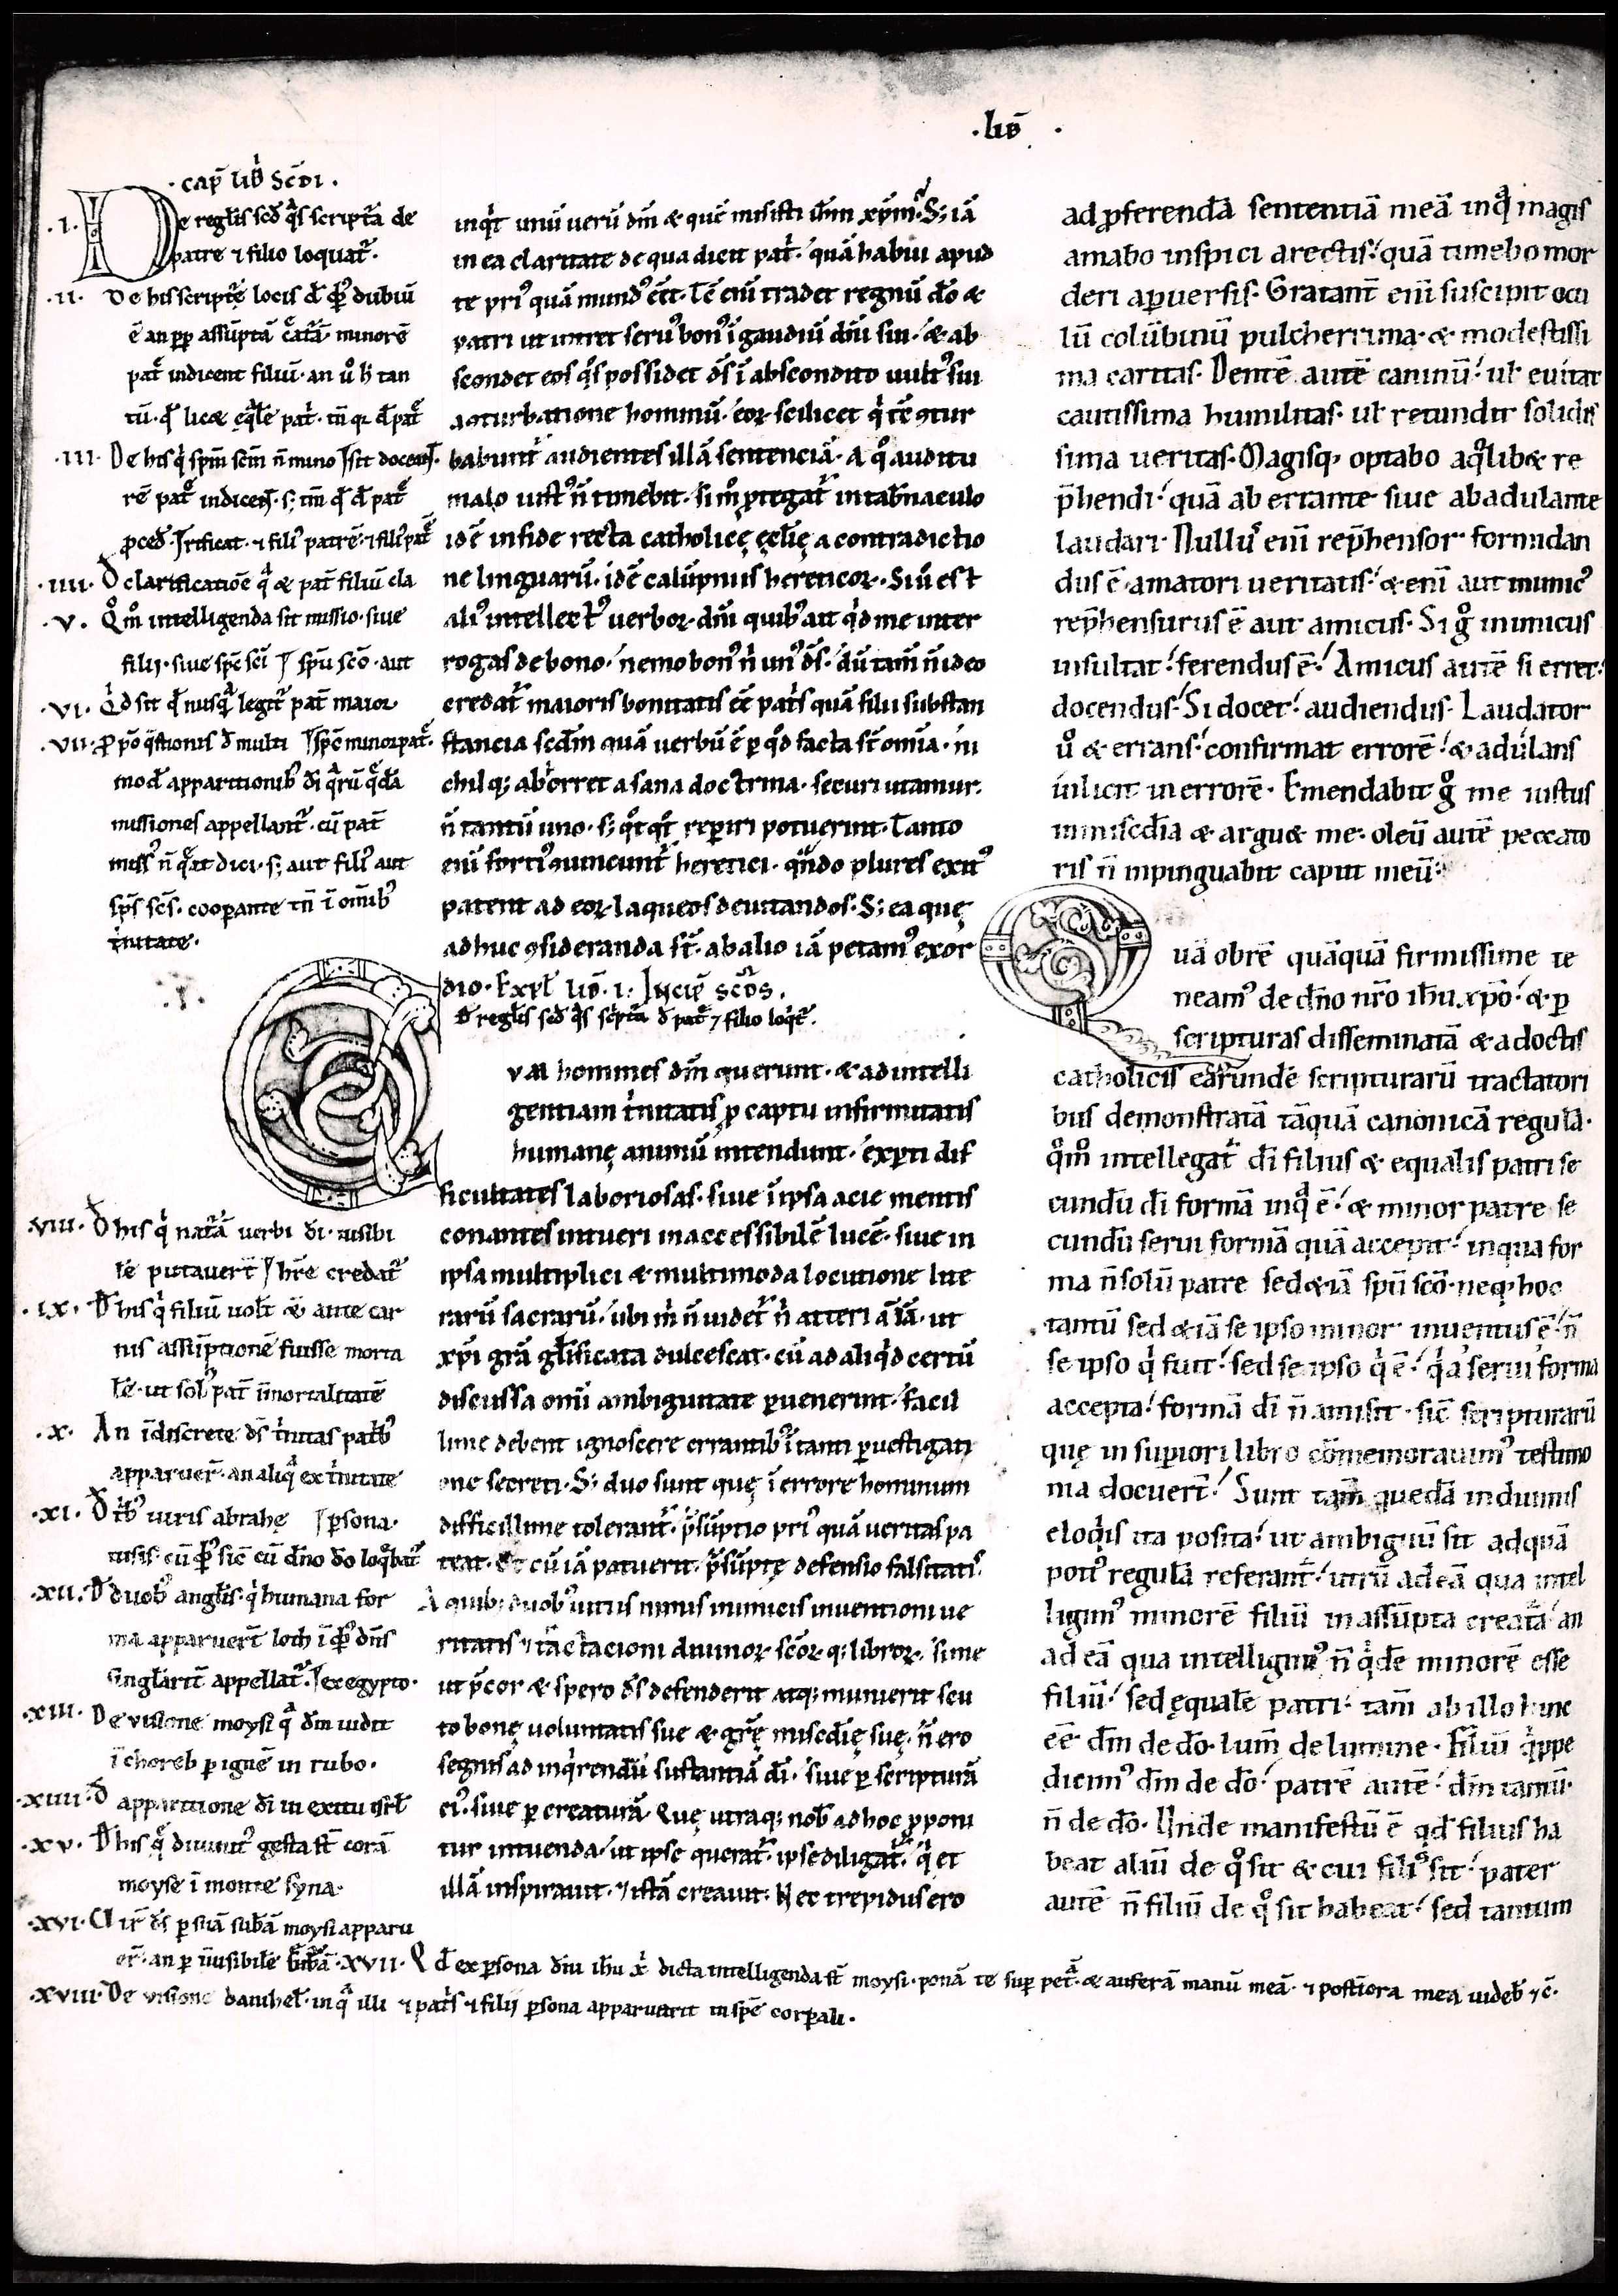 ·lib̄ ·
·cap̄ lib̾ Sc̄di·
·I· De regl̄is scd̄ q̾s script̄a de
patre ⁊ filio loquat̾·
·II· De his script̄ę locis d̄ q̾b; dubiū
ē an pp̄ assūptā c̾atā· minorē
pat̄ indicent filiū· an u̾ h̄ tan
tū· q̾ licæ ęq̄lē pat̾· tn̄ q̾ d̄ pat̄
·III· De his q̾ spm̄ scm̄ n̄ mino sit docent̾·
rē pat̄ indicent̾· s; tm̄ q̾ d̄ pat̄
pced̄· rificat· ⁊ fili̾ patrē· ⁊ fili̾ pat̄
·IIII· D̄ clarificatiōe q̾ & pat̄ filiū cla
·V· Qm̊ intelligenda sit missio· siue
filii· siue spc̄ sci̾ spū scō· aut
·VI· Q̾d sit q̾ nusq̾ legit̾ pat̄ maior
·VII· P̄ pō q̄stionis d̄ multi spc̄ minor pat̄·
mod̄ apparitionib̾ di̾ q̾rū q̄dā
missiones appellant̾· cū pat̄
miss̾ n̄ q̾at dici· s; aut fili̾ aut
sp̄s sc̄s· coop̄ante tn̄ ī om̄ib̾
t̾nitate·
·VIII· D̄ his q̾ nat̾ā uerbi di̾· uisibi
lē putauer̄t hr̄e credat̾
·IX· D̄ his q̾ filiū uol̄t & ante car
nis assūptionē fuisse morta
lē· ut sol̾ pat̄ īmortalitatē
·X· An īdiscrete d̄s t̾nitas pat̾b̾
apparuer̄· an aliq̾ ex t̾nitate
·XI· D̄ t̾b̾ uiris abrahę psona·
uisis· cū q̾b; sic̄ cū dn̄o dō loq̾bat̾
·XII· D̄ duob̾ angl̄is· q̾ humana for
ma apparuer̄t loth ī q̾b; dn̄s
singl̄arit̄ appellat̾· ex egypto·
·XIII· De uisione moysi q̾ dm̄ uidit
ī choreb p ignē in rubo·
·XIIII· D̄ apparitione di̾ in exitu isrl̄
·XV· D̄ his q̾ diuinit̾ gesta st̄ corā
moyse ī monte syna·
·XVI· U ir̄ d̄s p suā subā moysi apparu
er̄· an p īuisibilē ·XVII· Qd̄ ex psona dn̄i ih̄u x̾ dicta intelligenda st̄ moysi· ponā te sup pet̾ā· & auferā manū meā· ⁊ posteriora mea uideb̾ ⁊ c̄·
·XVIII· De uisione danihel· in q̾ illi ⁊ pat̾s ⁊ filii psona apparuerit in spē corpali·
inq̾t unū uerū dm̄ & quē misisti ih̄m xp̄m· S; iā
in ea claritate de qua dicit pat̾· quā habui apud
te pri̾ quā mund̾ eēt· Tē eni̾ tradet regnū dō &
patri ut intret seru̾ bon̾ ī gaudiū dn̄i sui· & ab
scondet eos q̾s possidet d̄s ī abscondito uult̾ sui
a ꝯturbatione hominū· eor̾ scilicet q̾ tē ꝯtur
babunt̾ audientes illā sentenciā· A q̊ auditu
malo iust̾ n̄ timebit· si m̊ ptegat̾ in tab̄naculo
idē in fide recta catholicę ęcl̄ię a contradictio
ne linguarū· idē calūpniis hereticor̾· Si u̾ est
ali̾ intellect̾ uerbor̾ dn̄i quib̾ ait q̾d me inter
rogas de bono· nemo bon̾ n̾ un̾ d̄s· dū tam̄ n̄ ideo
credat̾ maioris bonitatis eē pat̾s quā filii substan
stancia scdm̄ quā uerbū ē p q̾d facta st̄ omīa· ni
chilq; ab̾erret a sana doctrina· securi utamur·
n̄ tantū uno· s; q̾tq̾t repiri potuerint· Tanto
eni̾ forti̾ ꝯuincunt̾ heretici· qn̄do plures exit̾
patent ad eor̾ laqueos deuitandos· S; ea quę
adhuc ꝯsideranda st̄· ab alio iā petam̾ exor
dio· Expl̄ lib̄· I· Incip̄ scd̄s·
D̄ regl̄is scd̄ q̾s sc̾pt̄a d̄ pat̄ ⁊ filio loq̾t̾·
·I· Cum homines dm̄ querunt· & ad intelli
gentiam t̾nitatis p captu infirmitatis
humanę animū intendunt· expti dif
ficultates laboriosas· siue ī ipsa acie mentis
conantes intueri inaccessibilē lucē· siue in
ipsa multiplici & multimoda locutione litte
rarū sacrarū· ubi m̾ n̄ uidet̾ n̾ atteri ādā· ut
xp̄i gr̄a gl̄ificata dulcescat· cū ad aliq̾d certū
discussa omi̾ ambiguitate puenerint· facil
lime debent ignoscere errantib̾ ī tanti puestigati
one secreti· S; duo sunt quę ī errore hominum
difficillime tolerant̾· p̄sūptio pri̾ quā ueritas pa
teat· & cū iā patuerit· p̄sūptę defensio falsitatis·
A quib; duob̾ uitiis nimis inimicis inuentioni ue
ritatis ⁊ tāctacioni diuinor̾ scōr̾ q; libror̾· si me
ut p̄cor & spero d̄s defenderit atq; munierit scu
to bonę voluntatis sue & gr̄ę misc̄dię suę· n̄ ero
segnis ad inq̾rendū substantiā di̾· siue p scripturā
ei̾· siue p creaturā· Quę utraq; nob̄ ad hoc pponi
tur intuenda· ut ipse querat̾· ipse diligat̾· q̾ et
illā inspirauit· ⁊ istā creauit· Nec trepidus ero
ad pferendā sententiā meā inq̾ magis
amabo inspici a rectis· quā timebo mor
deri a peruersis· Gratant̄ eni̾ suscipit ocu
lū colūbinū pulcherrima· & modestissi
ma caritas· Dentē autē caninū· uł euitat
cautissima humilitas· uł retundit solidis
sima ueritas· Magisq; optabo a q̾lib& re
p̄hendi· quā ab errante siue ab adulante
laudari· Nullu̾ eni̾ rep̄hensor formidan
dus ē· amatori ueritatis· & eni̾ aut inimic̾
rep̄hensurus ē aut amicus· Si g̊ inimicus
insultat· ferendus ē· Amicus autē si erret·
docendus· Si docet· audiendus· Laudator
u̾ & errans· confirmat errorē· & adulans
inlicit in errorē· Emendabit g̊ me iustus
in misc̄dia & argu& me· oleū autē peccato
ris n̄ inpinguabit caput meū·
Quā obrē quāquā firmissime te
neam̾ de dn̄o nr̄o ih̄u xp̄o· & p
scripturas disseminatā & a doctis
catholicis earundē scripturarū tractatori
bus demonstratā tāquā canonicā regulā·
q̊m̊ intellegat̾ di̾ filius & equalis patri se
cundū di̾ formā inq̾ ē· & minor patre se
cundū serui formā quā accepit· in qua for
ma n̄ solū patre sed &iā spū scō· neq; hoc
tantū sed &iā se ipso minor inuentus ē· n̄
se ipso q̾ fuit· sed se ipso q̾ ē· q̾a serui forma
accepta· formā di̾ n̄ amisit· sic̄ scripturarū
quę in supiori libro cōmemorauim̾ testimo
nia docuer̄t· Sunt tam̄ quedā in diuinis
eloq̾is ita posita· ut ambiguū sit ad quā
poti̾ regulā referant̾· utrū ad eā qua intel
ligim̾ minorē filiū in assūpta creat̾a· an
ad eā qua intelligim̾ n̄ q̾dē minorē esse
filiū· sed ęqualē patri· tam̄ ab illo hunc
eē· dm̄ de dō· lum̄ de lumine· Filiū q̾ppe
dicim̾ dm̄ de dō· patrē autē· dm̄ tantū·
n̄ de dō· Unde manifestū ē qd̾ filius ha
beat aliū de q̊ sit & cui fili̾ sit· pater
autē n̄ filiū de q̊ sit habeat· sed tantum